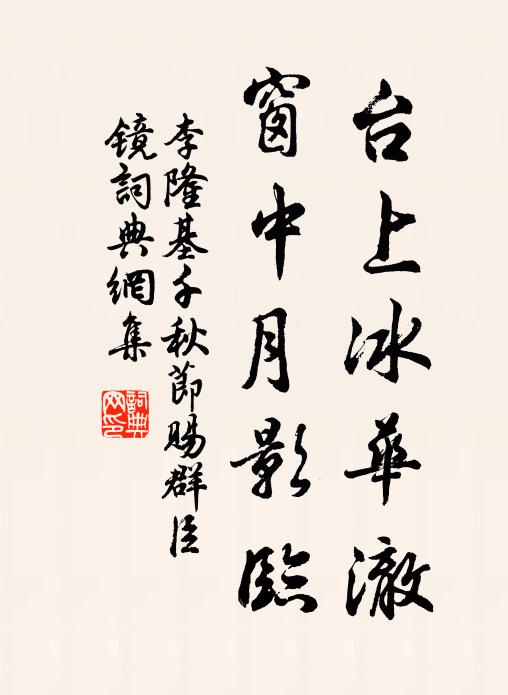 台上冰華澈
窗中月影臨
李隆基千秋節賜群臣
鏡詞典網集
詞典
网印